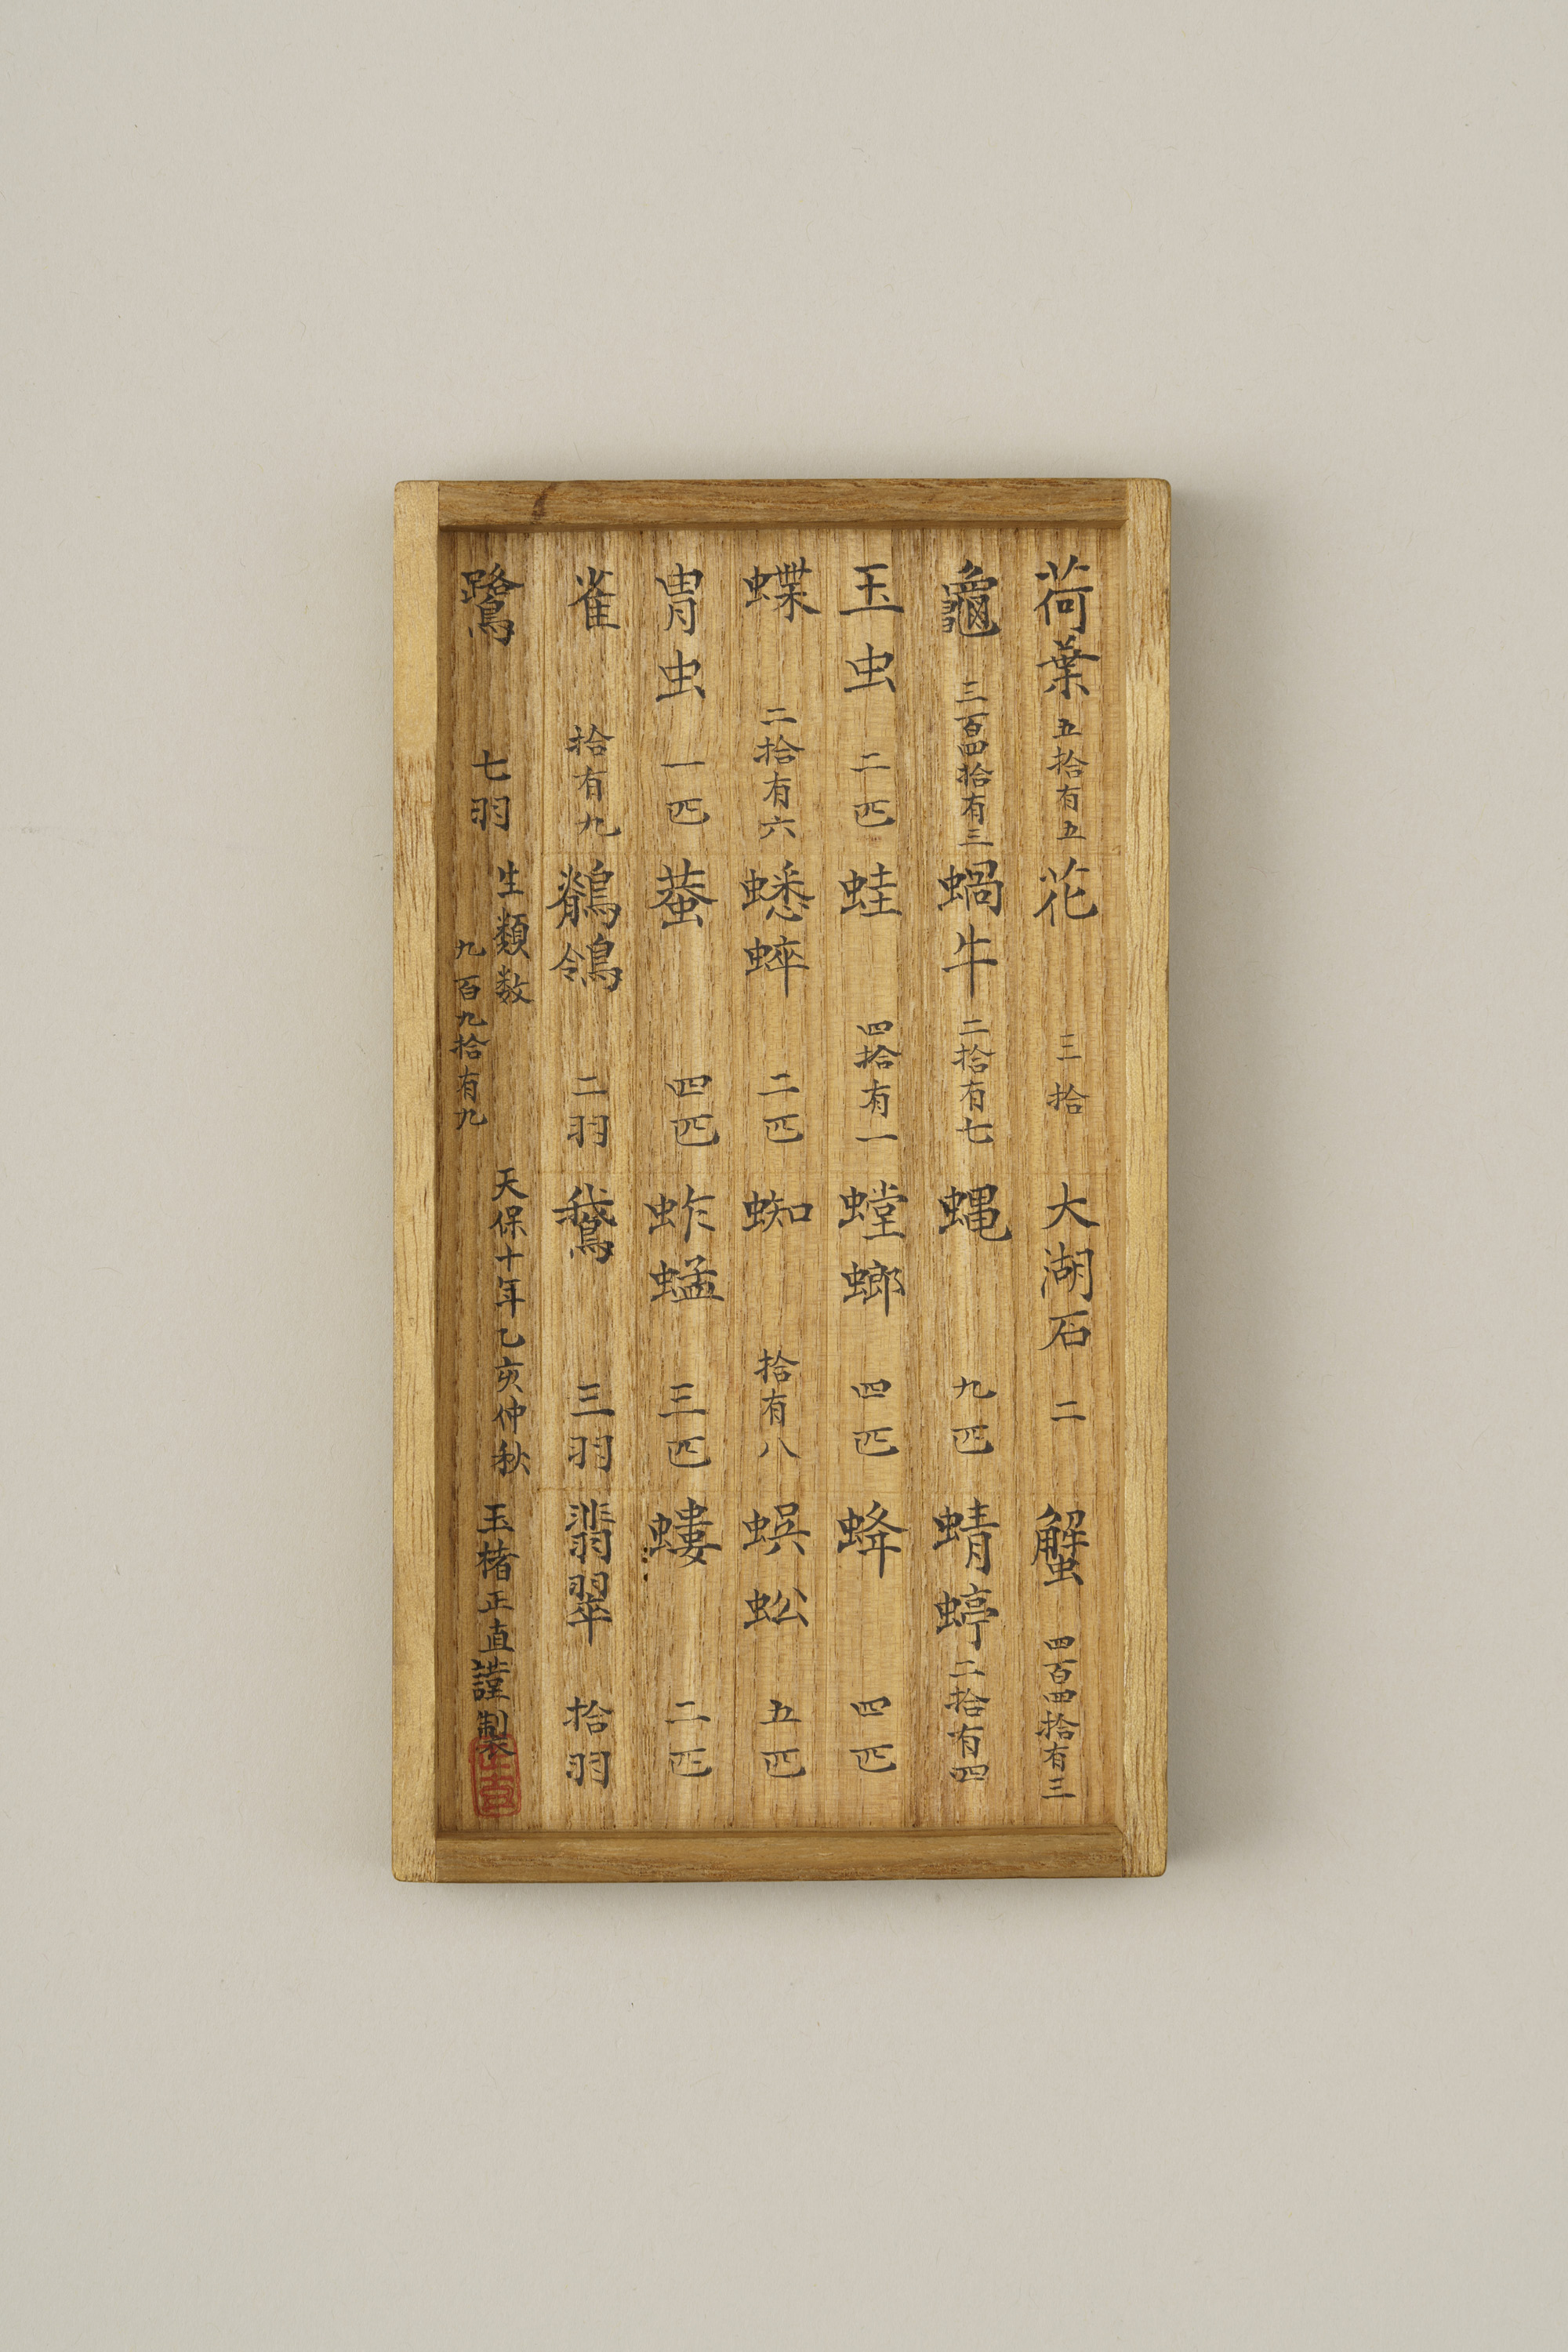 荷葉 五拾有五 花 三拾 大湖石 二 蟹 四百四拾有三
龜 三百四拾有三 蝸牛 二拾有七 蝿 九匹 蜻蝏 二拾有四
玉虫 二匹 蛙 四拾有一 螳螂 四匹 蜂 四匹
蝶 二拾有六 蟋蟀 二匹 蜘 拾有八 蜈蚣 五匹
胄虫 一匹 蛬 四匹 蚱蜢 三匹 螻 二匹
雀 拾有九 鶺鴒 二羽 鵞 三羽 翡翠 拾羽
鷺 七羽 生類数
九百九拾有九
天保十年乙亥仲秋
玉楮正直謹製